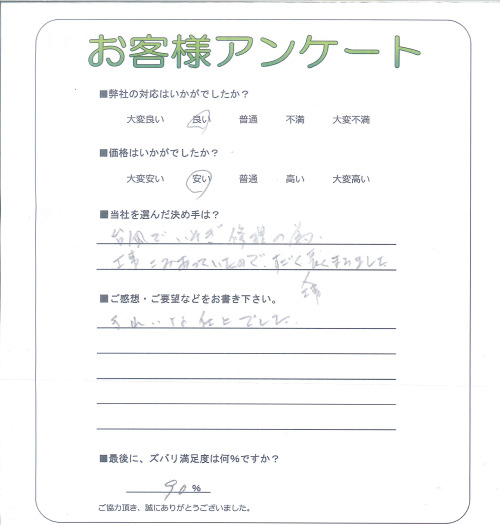 お客様アンケート
■弊社の対応はいかがでしたか？
大変良い 良い 普通 不満 大変不満
■価格はいかがでしたか？
大変安い 安い 普通 高い 大変高い
■当社を選んだ決め手は？
台風でいそぎ修理の為.
工事こみあっていたので、
工事
■ご感想・ご要望などをお書き下さい。
きれいな仕上でした.
■最後に、ズバリ満足度は何％ですか？
90 %
ご協力頂き、誠にありがとうございました。